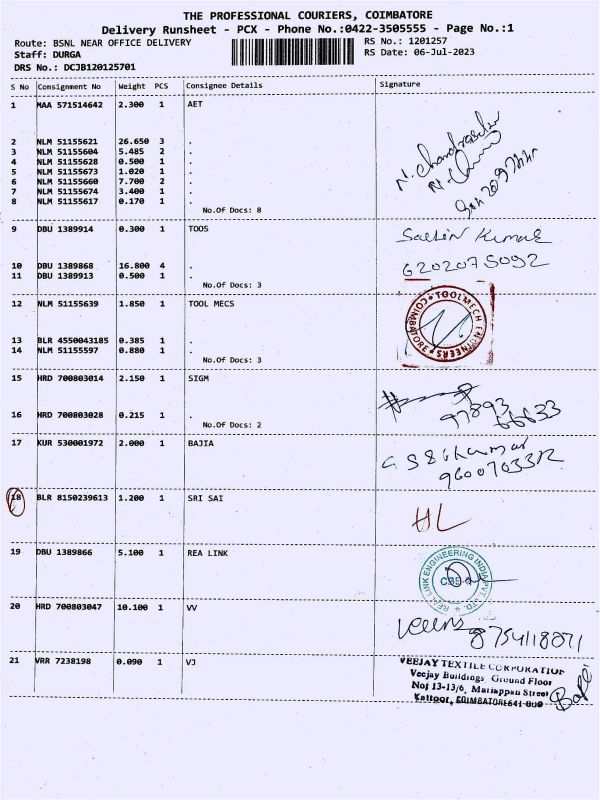 THE PROFESSIONAL COURIERS, COIMBATORE
Delivery Runsheet - PCX - Phone No.:0422-3505555 - Page No.:1
Route: BSNL NEAR OFFICE DELIVERY RS No.: 1201257
Staff: DURGA RS Date: 06-Jul-2023
DRS No.: DCJB120125701
S No Consignment No Weight PCS Consignee Details Signature
1 MAA 571514642 2.300 1 AET
2 NLM 51155621 26.650 3 .
3 NLM 51155604 5.485 2 .
4 NLM 51155628 0.500 1 .
5 NLM 51155673 1.020 1 .
6 NLM 51155660 7.700 2 .
7 NLM 51155674 3.400 1 .
8 NLM 51155617 0.170 1 .
No.Of Docs: 8
N. Chandrasekar
9 DBU 1389914 0.300 1 TOOS
10 DBU 1389868 16.800 4 .
11 DBU 1389913 0.500 1 .
No.Of Docs: 3
Kumar
6202075092
12 NLM 51155639 1.850 1 TOOL MECS
13 BLR 4550043185 0.385 1 .
14 NLM 51155597 0.880 1 .
No.Of Docs: 3
TOOLMECH ENGINEERS
COIMBATORE
15 HRD 700803014 2.150 1 SIGM
16 HRD 700803028 0.215 1 .
No.Of Docs: 2
97893
66633
17 KUR 530001972 2.000 1 BAJIA
18 BLR 8150239613 1.200 1 SRI SAI
HL
19 DBU 1389866 5.100 1 REA LINK
REA LINK ENGINEERING INDIA PVT. LTD.
CBE
20 HRD 700803047 10.100 1 VV
8754118071
21 VRR 7238198 0.090 1 VJ
VEEJAY TEXTILE CORPORATION
Veejay Buildings, Ground Floor
No: 13-13/6, Mariappan Street
Kattoor, COIMBATORE-641 009